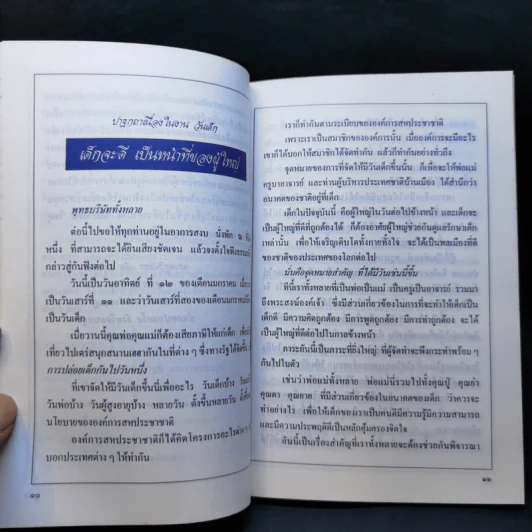 ปาฐกถาเนื่องในงาน วันเด็ก
เด็กจะดี เป็นหน้าที่ของผู้ใหญ่
พุทธบริษัททั้งหลาย
ต่อนี้ไปขอให้ทุกท่านอยู่ในอาการสงบ นั่งพัก ณ ที่
หนึ่ง ที่สามารถจะได้ยินเสียงชัดเจน แล้วจงตั้งใจฟังธรรม
กล่าวสู่กันฟังต่อไป
วันนี้เป็นวันอาทิตย์ ที่ ๑๒ ของเดือนมกราคม เมื่อ
เป็นวันเสาร์ที่ ๑๑ และว่าวันเสาร์ที่สองของเดือนมกราคม
เป็นวันเด็ก
เมื่อวานนี้คุณพ่อคุณแม่ก็ต้องเสียภาษีให้แก่เด็ก
เที่ยวไปเตร่สนุกสนานเฮฮากันในที่ต่าง ๆ ซึ่งทางรัฐได้จัด
การปล่อยเด็กกันไปวันหนึ่ง
ที่เขาจัดให้มีวันเด็กขึ้นนี้เพื่ออะไร วันเด็กบ้าง วันแม่
วันพ่อบ้าง วันผู้สูงอายุบ้าง หลายวัน ตั้งขึ้นหลายวัน
นโยบายขององค์การสหประชาชาติ
องค์การสหประชาชาติก็ได้คิดโครงการอะไรต่าง ๆ
บอกประเทศต่าง ๆ ให้ทำกัน
๑๐
เราก็ทำกันตามระเบียบขององค์การสหประชาชาติ
เพราะเราเป็นสมาชิกขององค์การนั้น เมื่อองค์การจะมีอะไร
เขาก็ได้บอกให้สมาชิกได้จัดทำกัน แล้วก็ทำกันอย่างทั่วถึง
จุดหมายของการที่จัดให้มีวันเด็กขึ้นนั้น ก็เพื่อจะให้พ่อแม่
ครูบาอาจารย์ และท่านผู้บริหารประเทศชาติบ้านเมือง ได้สำนึกว่า
อนาคตของชาติอยู่ที่เด็ก
เด็กในปัจจุบันนี้ คือผู้ใหญ่ในวันต่อไปข้างหน้า และเด็กจะ
เป็นผู้ใหญ่ที่ดีที่ถูกต้องได้ ก็ต้องอาศัยผู้ใหญ่ช่วยกันดูแลรักษาเด็ก
เหล่านั้น เพื่อให้เจริญเติบโตทั้งกายทั้งใจ จะได้เป็นพลเมืองที่ดี
ของชาติของประเทศของโลกต่อไป
นับคือจุดหมายสำคัญ ที่ได้มีวันเช่นนี้ขึ้น
ที่นี้เราทั้งหลายที่เป็นพ่อเป็นแม่ เป็นครูเป็นอาจารย์ รวมมา
ถึงพระสงฆ์องค์เจ้า ซึ่งมีส่วนเกี่ยวข้องในการที่จะทำให้เด็กเป็น
เด็กดี มีความคิดถูกต้อง มีการพูดถูกต้อง มีการทำถูกต้อง จะได้
เป็นผู้ใหญ่ที่ดีต่อไปในกาลข้างหน้า
ภาระอันนี้เป็นภาระที่ยิ่งใหญ่ ที่ผู้จัดทำจะพึงกระทำพร้อม ๆ
กันไปในตัว
เช่นว่าพ่อแม่ทั้งหลาย พ่อแม่นี้รวมไปทั้งคุณปู่ คุณย่า
คุณตา คุณยาย ที่มีส่วนเกี่ยวข้องในอนาคตของเด็ก ว่าควรจะ
ทำอย่างไร เพื่อให้เด็กของเราเป็นคนดีมีความรู้มีความสามารถ
และมีความประพฤติดีเป็นหลักคุ้มครองจิตใจ
อันนี้เป็นเรื่องสำคัญที่เราทั้งหลายจะต้องช่วยกันพิจารณา
๑๑